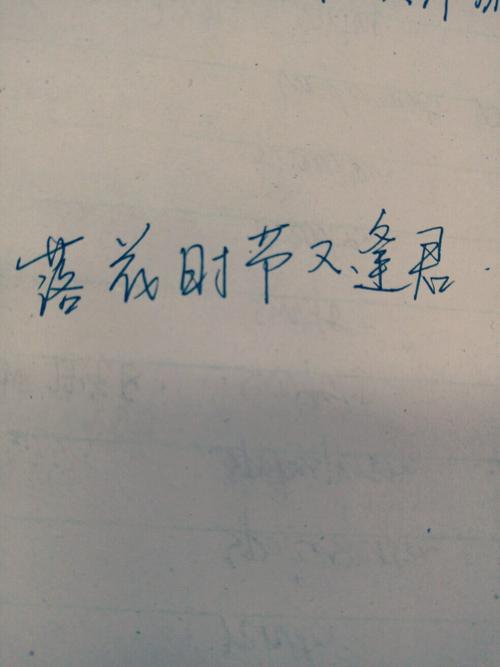 落花时节又逢君.